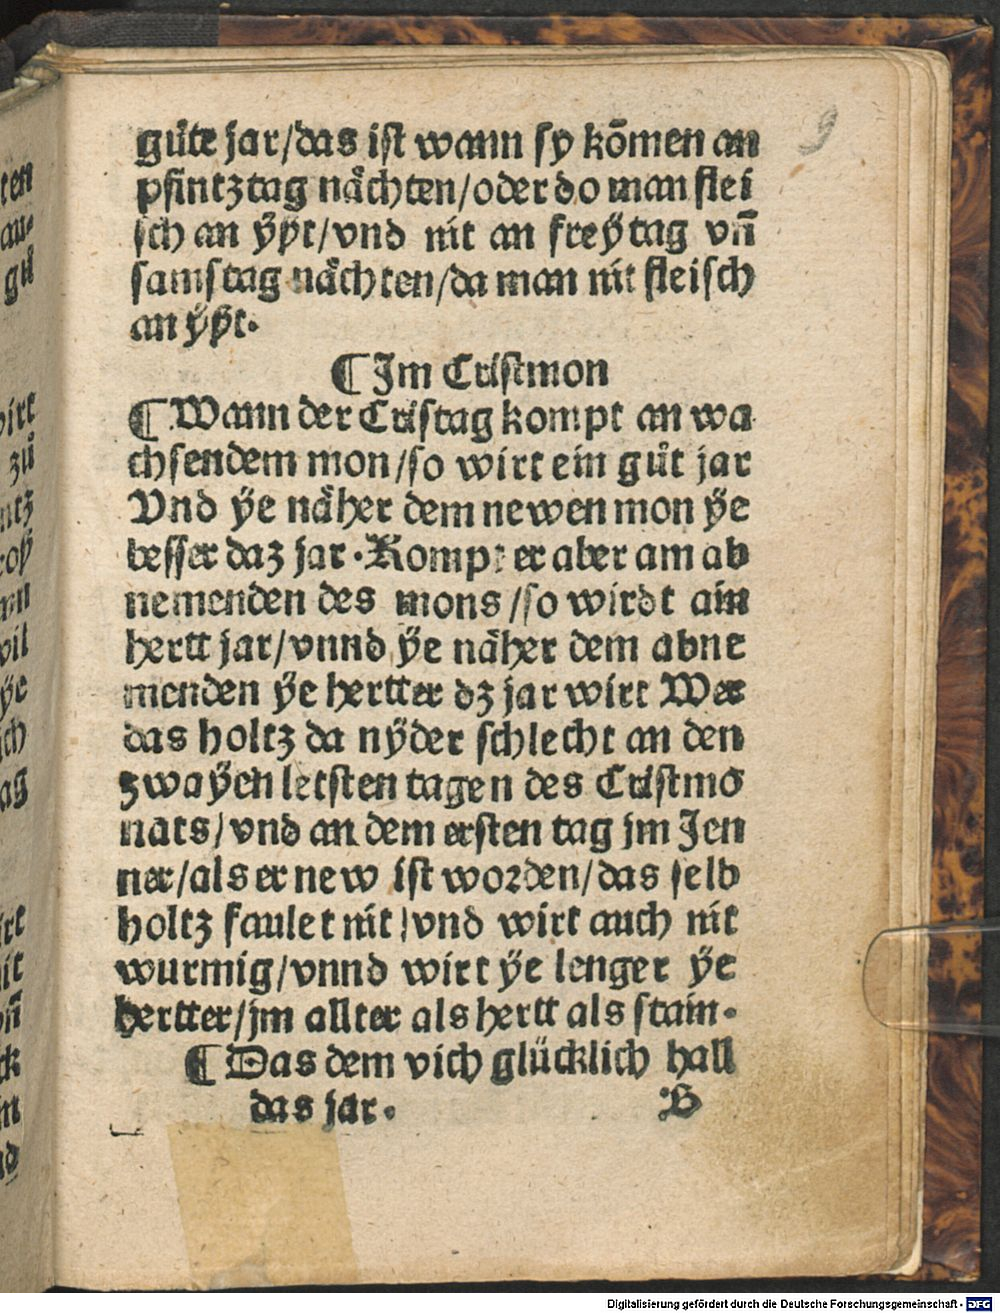 9
guͤte jar/das ist wann sy kōmen an
pfintztag naͤchten/oder do man flei
sch an ÿßt/vnd nit an freÿtag vn̄
samstag naͤchten/da man nit fleisch
an ÿßt.
¶ Im Cristmon
¶ Wann der Cristag kompt an wa
chsendem mon/so wirt ein guͦt jar
Vnd ÿe naͤher dem newen mon ÿe
besser daz jar. Kompt er aber am ab
nemenden des mons/so wirdt ain
hertt jar/vnnd ÿe naͤher dem abne
menden ÿe hertter dz jar wirt Wer
das holtz da nÿder schlecht an den
zwaÿen letsten tagen des Cristmo
nats/vnd an dem ersten tag jm Jen
ner/als er new ist worden/das selb
holtz faulet nit/vnd wirt auch nit
wurmig/vnnd wirt ÿe lenger ÿe
hertter/jm allter als hertt als stain.
¶ Das dem vich glücklich hall
das jar. B
ten
au⸗
guͦ
wirt
zuͦ
ntz
roß
nn
vil
ÿe
ich
ag
irt
it
vn̄
ck
nt
nd
Digitalisierung gefördert durch die Deutsche Forschungsgemeinschaft - DFG